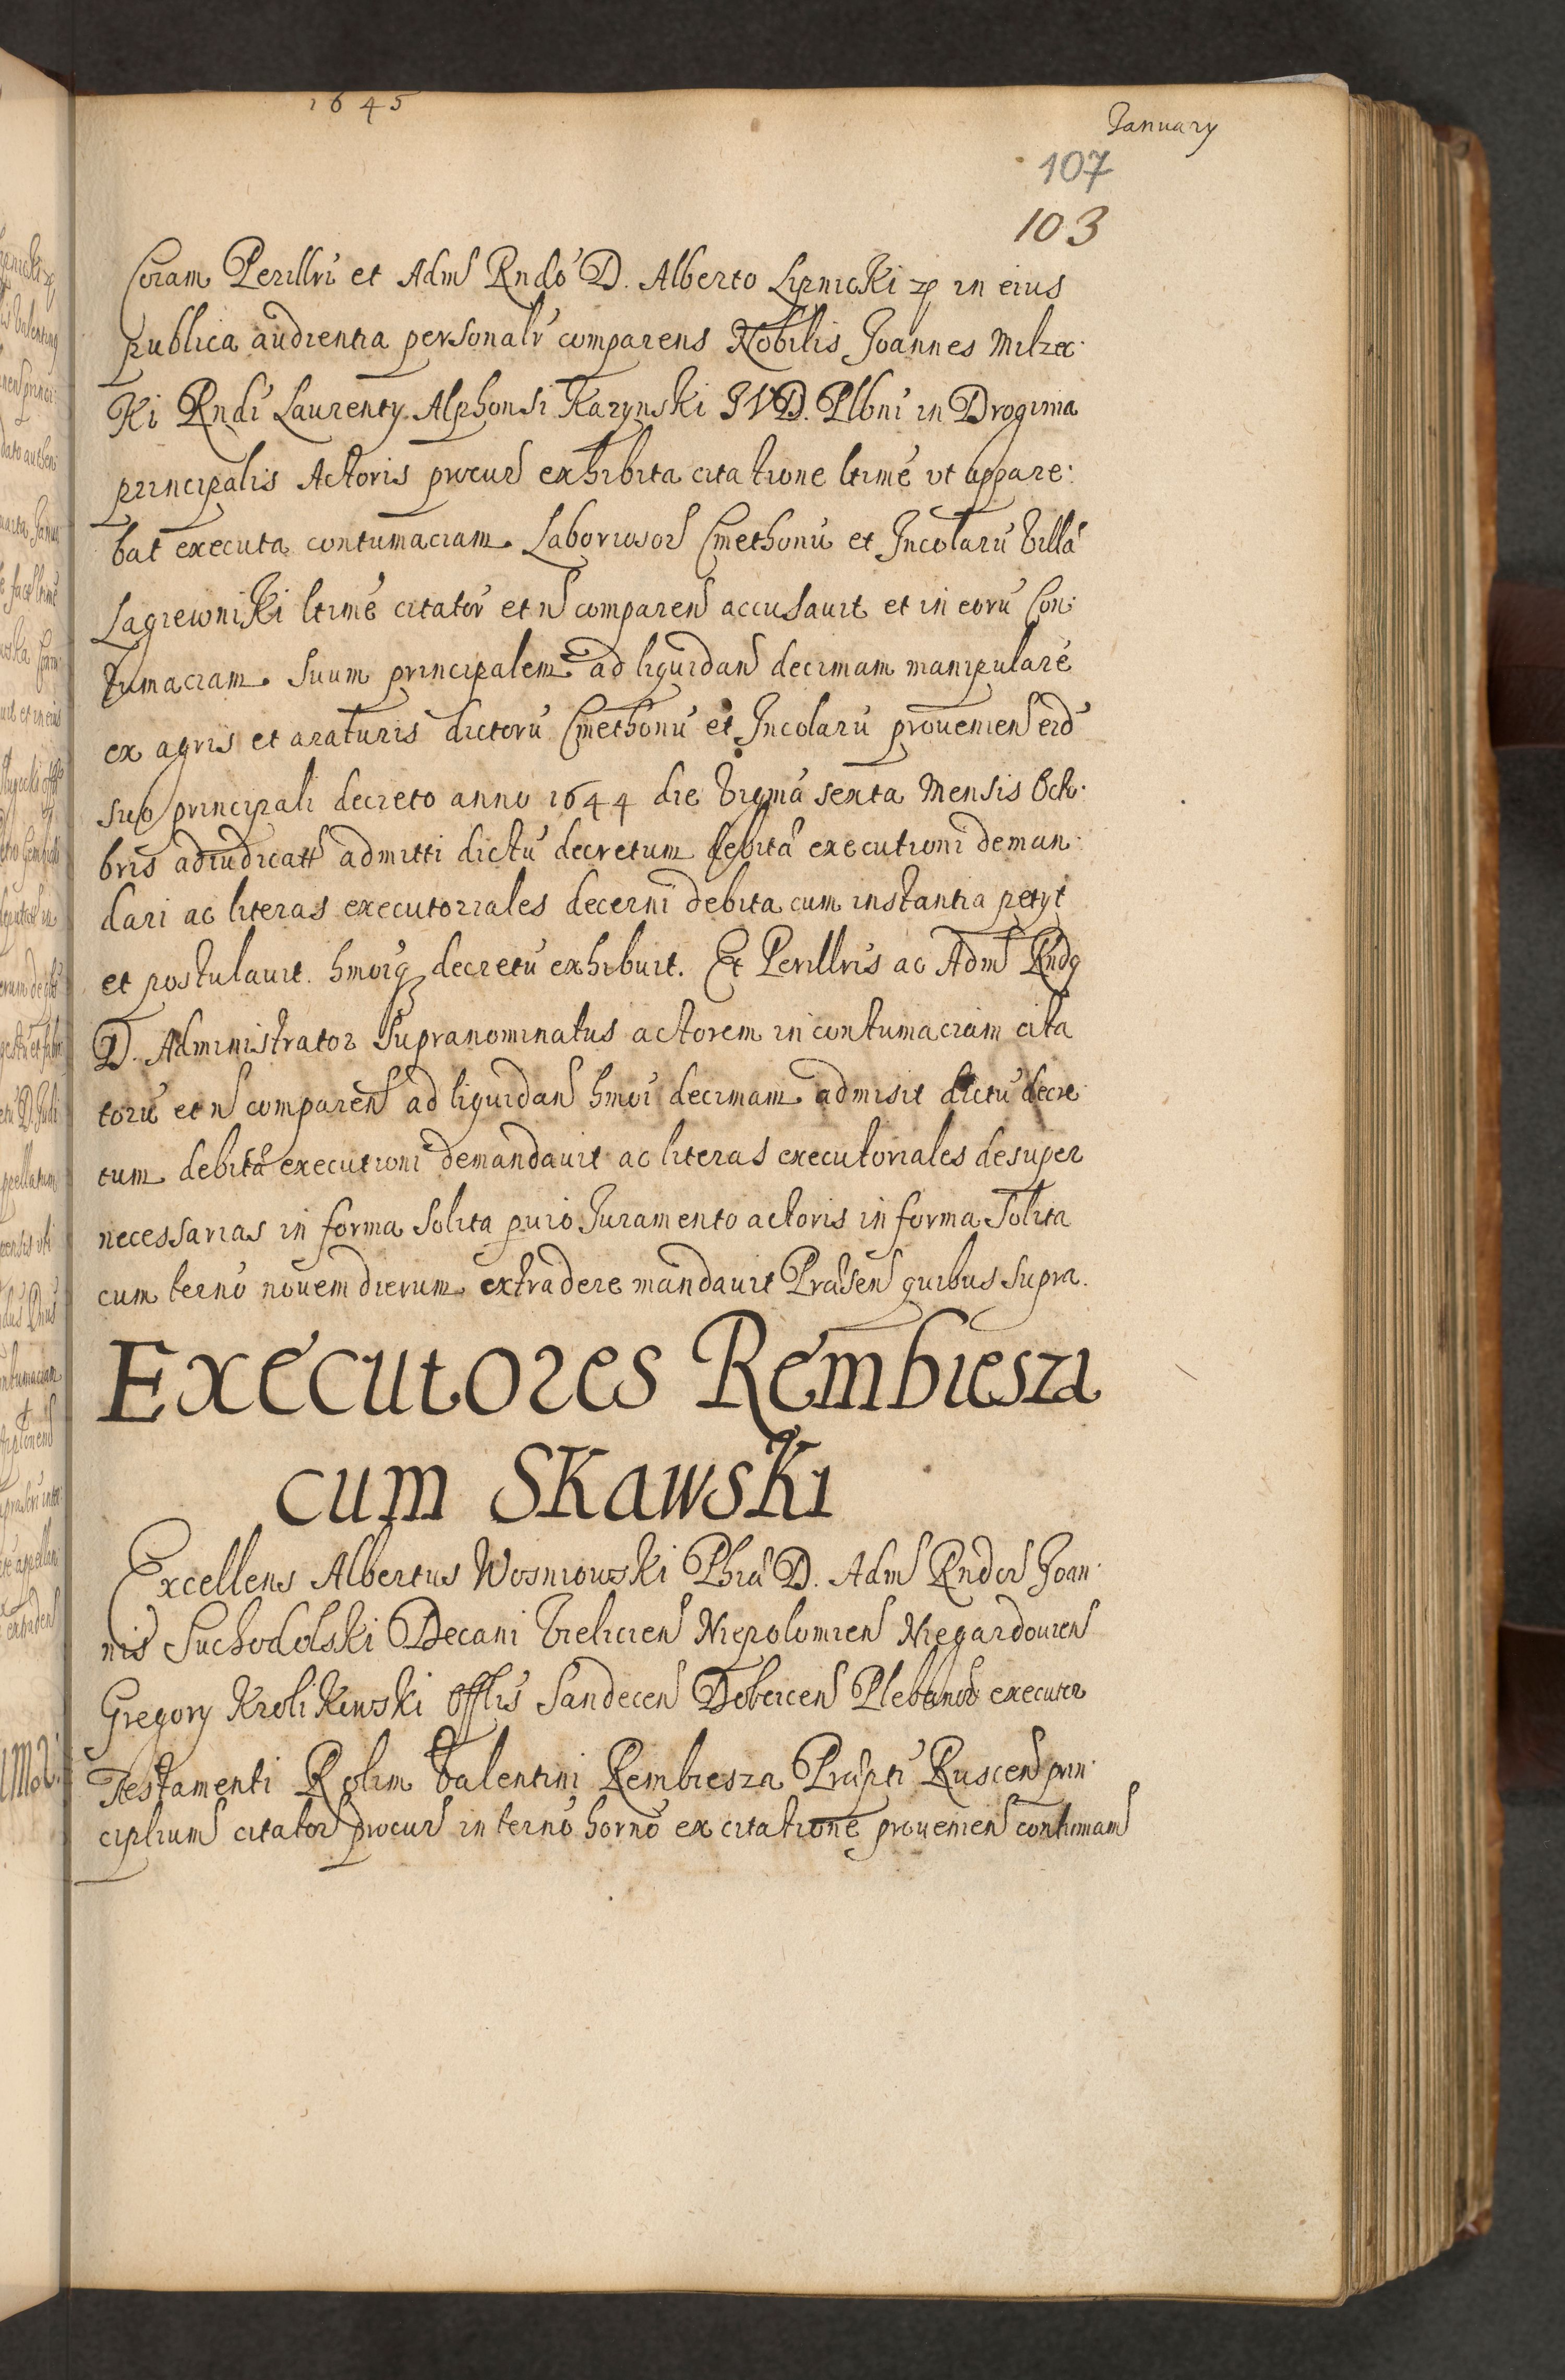 1645
January
107
103
Coram Perillri et Adm Rndo D. Alberto Lipnicki in eius
publica audientia personalr comparens Nobilis Joannes Milzec:
ki Rndi Laurenty Alphonsi Karynski JVD. Plbni in Droginia
principalis Actoris procur exhibita citatione ltime vt appare:
bat executa contumaciam Laboriosor Cmethonu et Incolaru villa
Lagiewniki ltime citator et n comparen accusauit et in eoru Con:
tumaciam suum principalem ad liquidan decimam manipulare
ex agris et araturis dictoru Cmethonu et Incolaru prouenien eid
suo principali decreto anno 1644 die vigma sexta Mensis Octo:
bris adiudicatt admitti dictu decretum debita executioni deman:
dari ac literas executoriales decerni debita cum instantia petyt
et postulauit. hmoiq decretu exhibuit. Et Perillris ac Adm Rndq
D. Administrator supranominatus actorem in contumaciam cita
toru et n comparen ad liquidan hmoi decimam admisit dictu decre
tum debita executioni demandauit ac literas executoriales desuper
necessarias in forma solita puio Juramento actoris in forma solita
cum terno nouem dierum extradere mandauit Prasen quibus supra.
Executores Rembiesza
cum Skawski
Excellens Albertus Wosniowski Phia D. Adm Rndor Joan:
nis Suchodolski Decani Vielicien Niepolomien Niegardouien
Gregory Krolikowski Offlis Sandecen Dobcicen Plebanor executor
Testamenti R olim Valentini Rembiesza Prapti Ruscen prin:
ciplium citator procur in terno horno ex citatione prouenien contumam